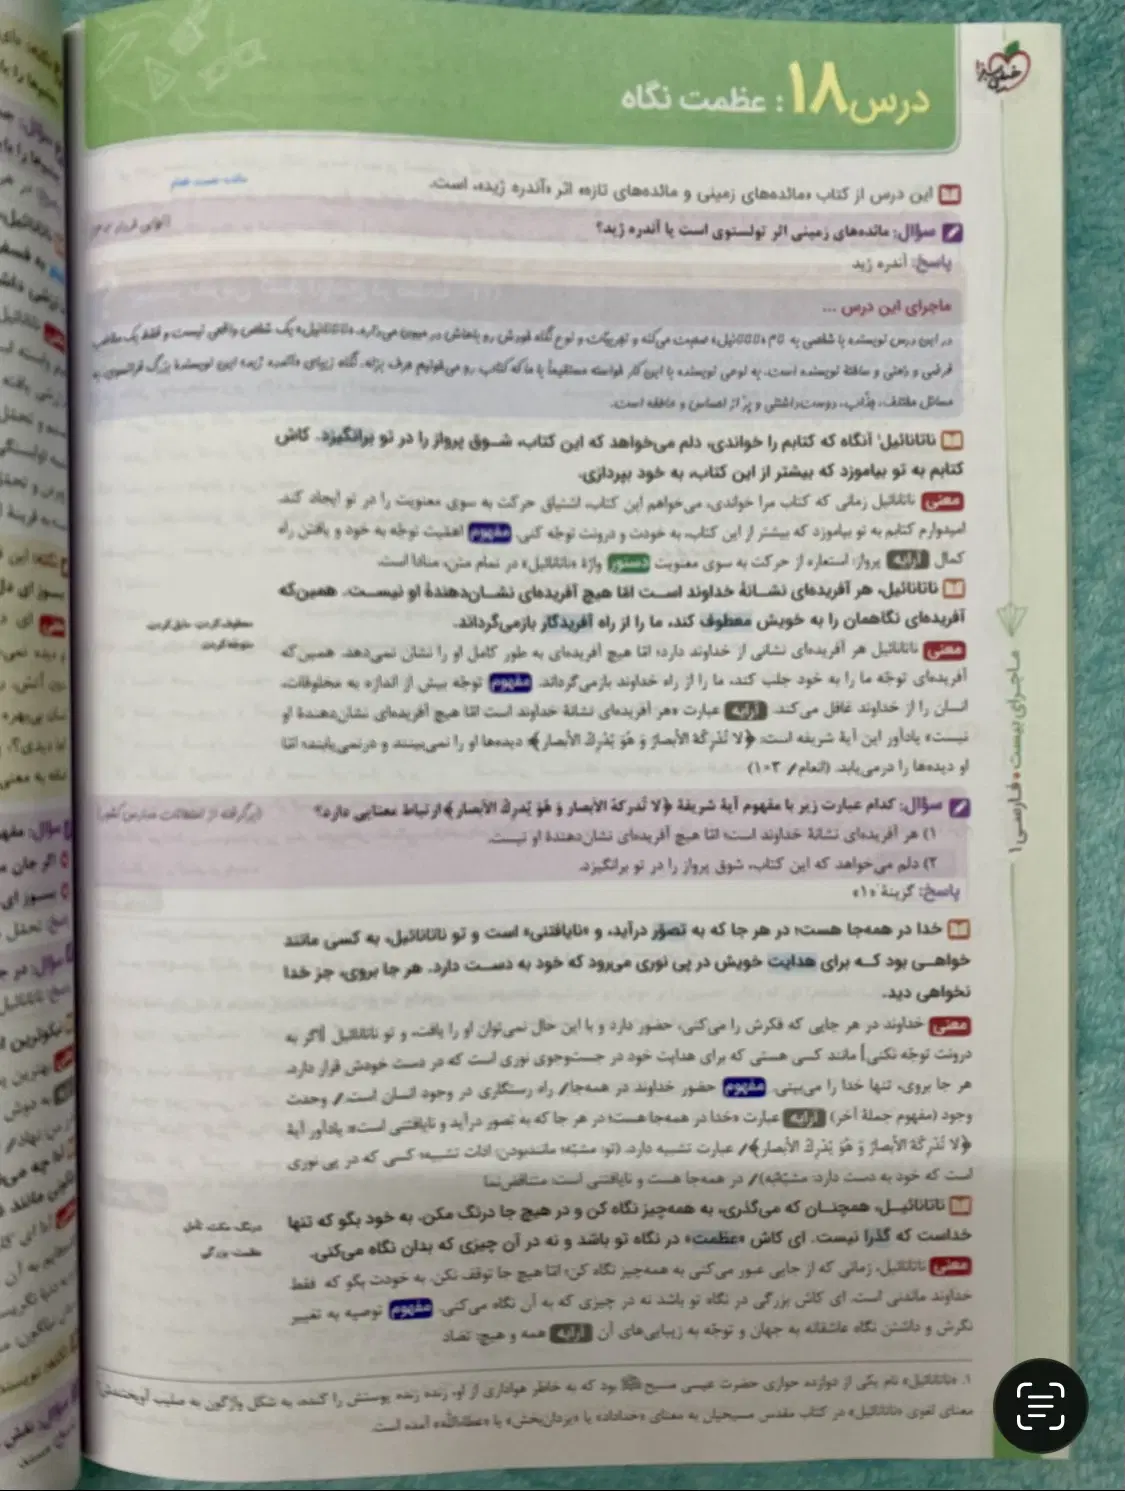 درس ۱۸: عظمت نگاه
خیلی سبز
این درس از کتاب «مائده‌های زمینی و مائده‌های تازه» اثر «آندره ژید»، است.
سؤال: مائده‌های زمینی اثر تولستوی است یا آندره ژید؟
پاسخ: آندره ژید
ماجرای این درس ...
در این درس نویسنده با شخصی به نام «ناتانائیل» صحبت می‌کنه و تجربیات و نوع نگاه خودش رو باهاش در میون می‌ذاره. «ناتانائیل» یک شخص واقعی نیست و فقط یک مخاطب
فرضی و ذهنی و ساختهٔ نویسنده است. به نوعی نویسنده با این کار خواسته مستقیماً با ما که کتاب رو می‌خونیم حرف بزنه. نگاه زیبای «آندره ژید» این نویسندهٔ بزرگ فرانسوی، به
مسائل مختلف، جذّاب، دوست‌داشتنی و پر از احساس و عاطفه است.
ناتانائیل¹ آنگاه که کتابم را خواندی، دلم می‌خواهد که این کتاب، شوق پرواز را در تو برانگیزد. کاش
کتابم به تو بیاموزد که بیشتر از این کتاب، به خود بپردازی.
معنی ناتانائیل زمانی که کتاب مرا خواندی، می‌خواهم این کتاب، اشتیاق حرکت به سوی معنویت را در تو ایجاد کند.
امیدوارم کتابم به تو بیاموزد که بیشتر از این کتاب، به خودت و درونت توجّه کنی. مفهوم اهمّیت توجّه به خود و یافتن راه
کمال آرایه پرواز: استعاره از حرکت به سوی معنویت دستور واژهٔ «ناتانائیل» در تمام متن، منادا است.
ناتانائیل، هر آفریده‌ای نشانهٔ خداوند است امّا هیچ آفریده‌ای نشان‌دهندهٔ او نیست. همین‌که
آفریده‌ای نگاهمان را به خویش معطوف کند، ما را از راه آفریدگار بازمی‌گرداند.
معطوف کردن: مایل کردن،
متوجّه کردن
معنی ناتانائیل هر آفریده‌ای نشانی از خداوند دارد؛ امّا هیچ آفریده‌ای به طور کامل او را نشان نمی‌دهد. همین‌که
آفریده‌ای توجّه ما را به خود جلب کند، ما را از راه خداوند بازمی‌گرداند. مفهوم توجّه بیش از اندازه به مخلوقات،
انسان را از خداوند غافل می‌کند. آرایه عبارت «هر آفریده‌ای نشانهٔ خداوند است امّا هیچ آفریده‌ای نشان‌دهندهٔ او
نیست» یادآور این آیهٔ شریفه است: ﴿لا تُدْرِكُهُ الأبصارُ وَ هُوَ يُدْرِكُ الأبصار﴾: دیده‌ها او را نمی‌بینند و درنمی‌یابند؛ امّا
او دیده‌ها را درمی‌یابد. (انعام/ ۱۰۳)
سؤال: کدام عبارت زیر با مفهوم آیهٔ شریفهٔ ﴿لا تُدرِكهُ الأبصار وَ هُوَ يُدرِكُ الأبصار﴾ ارتباط معنایی دارد؟
(برگرفته از امتحانات مدارس کشور)
۱) هر آفریده‌ای نشانهٔ خداوند است؛ امّا هیچ آفریده‌ای نشان‌دهندهٔ او نیست.
۲) دلم می‌خواهد که این کتاب، شوق پرواز را در تو برانگیزد.
پاسخ: گزینهٔ «۱»
خدا در همه‌جا هست؛ در هر جا که به تصوّر درآید، و «نایافتنی» است و تو ناتانائیل، به کسی مانند
خواهی بود که برای هدایت خویش در پی نوری می‌رود که خود به دست دارد. هر جا بروی، جز خدا
نخواهی دید.
معنی خداوند در هر جایی که فکرش را می‌کنی، حضور دارد و با این حال نمی‌توان او را یافت، و تو ناتانائیل [اگر به
درونت توجّه نکنی] مانند کسی هستی که برای هدایت خود در جست‌وجوی نوری است که در دست خودش قرار دارد.
هر جا بروی، تنها خدا را می‌بینی. مفهوم حضور خداوند در همه‌جا/ راه رستگاری در وجود انسان است./ وحدت
وجود (مفهوم جملهٔ آخر) آرایه عبارت «خدا در همه‌جا هست؛ در هر جا که به تصور درآید و نایافتنی است»: یادآور آیهٔ
﴿لا تُدْرِكُهُ الأبصارُ وَ هُوَ يُدْرِكُ الأبصار﴾/ عبارت تشبیه دارد. (تو: مشبّه؛ مانندبودن: ادات تشبیه؛ کسی که در پی نوری
است که خود به دست دارد: مشبّهٌ‌به)/ در همه‌جا هست و نایافتنی است: متناقض‌نما
ناتانائیل، همچنان که می‌گذری، به همه‌چیز نگاه کن و در هیچ جا درنگ مکن. به خود بگو که تنها
خداست که گذرا نیست. ای کاش «عظمت» در نگاه تو باشد و نه در آن چیزی که بدان نگاه می‌کنی.
درنگ: مکث، تأمل
عظمت: بزرگی
معنی ناتانائیل، زمانی که از جایی عبور می‌کنی به همه‌چیز نگاه کن؛ امّا هیچ جا توقف نکن. به خودت بگو که فقط
خداوند ماندنی است. ای کاش بزرگی در نگاه تو باشد نه در چیزی که به آن نگاه می‌کنی. مفهوم توصیه به تغییر
نگرش و داشتن نگاه عاشقانه به جهان و توجّه به زیبایی‌های آن آرایه همه و هیچ: تضاد
۱. «ناتانائیل» نام یکی از دوازده حواری حضرت عیسی مسیح بود که به خاطر هواداری از او، زنده زنده پوستش را کندند، به شکل واژگون به صلیب آویختندش!
معنای لغوی «ناتانائیل» در کتاب مقدس مسیحیان به معنای «خداداد» یا «یزدان‌بخش» یا «عطاءاللّه» آمده است.
ماجرای بیست • فارسی ۱